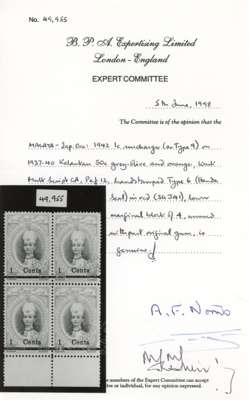 No. 49,955
B. P. A. Expertising Limited
London - England
EXPERT COMMITTEE
5th June, 1998
The Committee is of the opinion that the
MALAYA - Jap. Occ: 1942 1c surcharge (as Type 9) on
1937-40 Kelantan 50c grey-olive and orange, Wmk
Mult Script CA, Perf 12, handstamped Type 6 (Handa
Seal) in red (SG J41), lower
marginal block of 4, unused
without original gum, is
genuine
49,955
1 Cents
1 Cents
1 Cents
1 Cents
members of the Expert Committee can accept
or individual, for any opinion expressed.